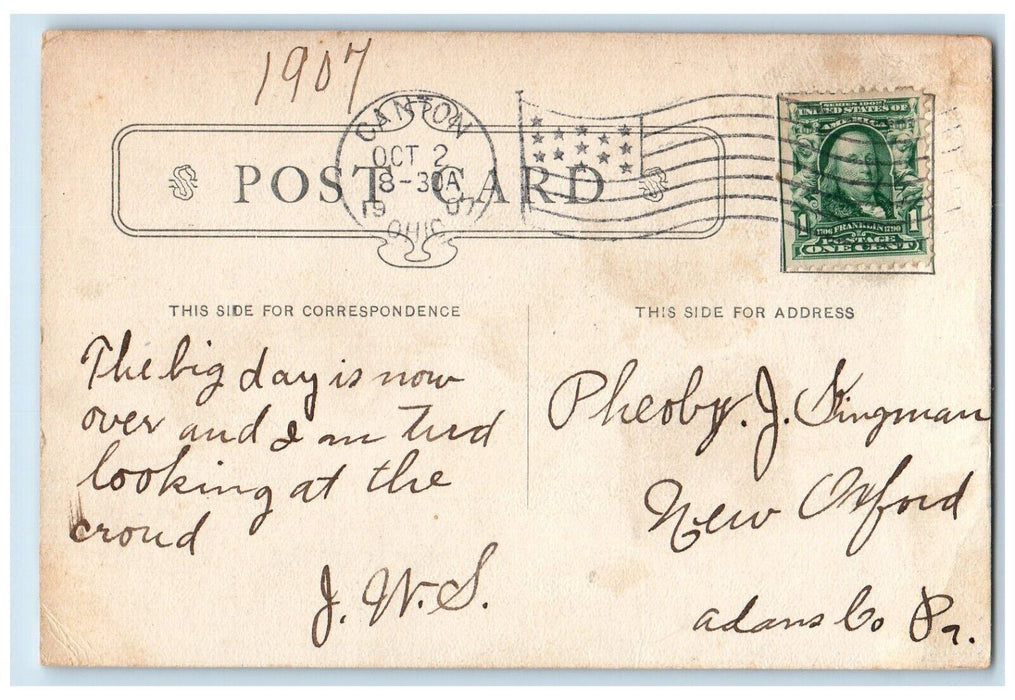 1907
CANTON
OCT 2
8-30A
1907
OHIO
POST CARD
SERIES 1902
UNITED STATES OF
AMERICA
1 1
1706 FRANKLIN 1790
POSTAGE
ONE CENT
THIS SIDE FOR CORRESPONDENCE
The big day is now
over and I am tird
looking at the
croud
J. W. S.
THIS SIDE FOR ADDRESS
Pheoby. J. Kingman
New Oxford
adams Co Pa.